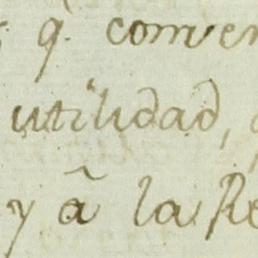 q.^ conven
utilidad,
y â la Re